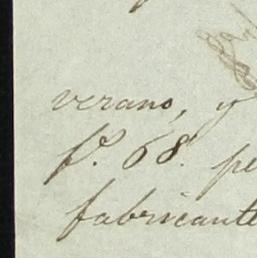 verano, y
fº. 68. pe
fabricante